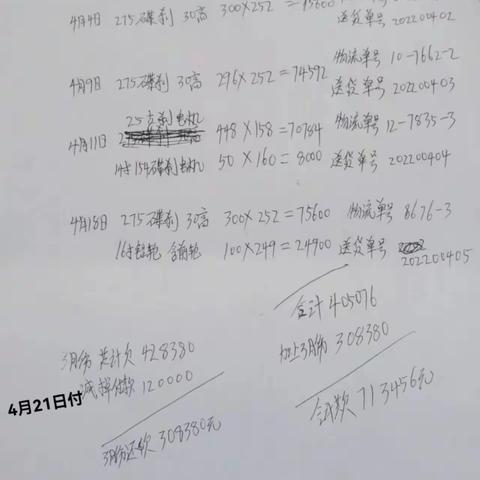 4月4日 275碟刹 30高 300×252=75600
送货单号 202200402
4月9日 275碟刹 30高 296×252=74592 物流单号 10-7662-2
送货单号 202200403
25高刹电机
4月11日 448×158=70784 物流单号 12-7835-3
14寸154碟刹电机 50×160=8000 送货单号 202200404
4月18日 275碟刹 30高 300×252=75600 物流单号 8676-3
16寸 含前轮 100×249=24900 送货单号
202200405
合计 405076
加上3月份 308380
合计欠 713456元
3月份 共计欠 428380
减 付款 120000
4月21日付
3月份还欠 308380元